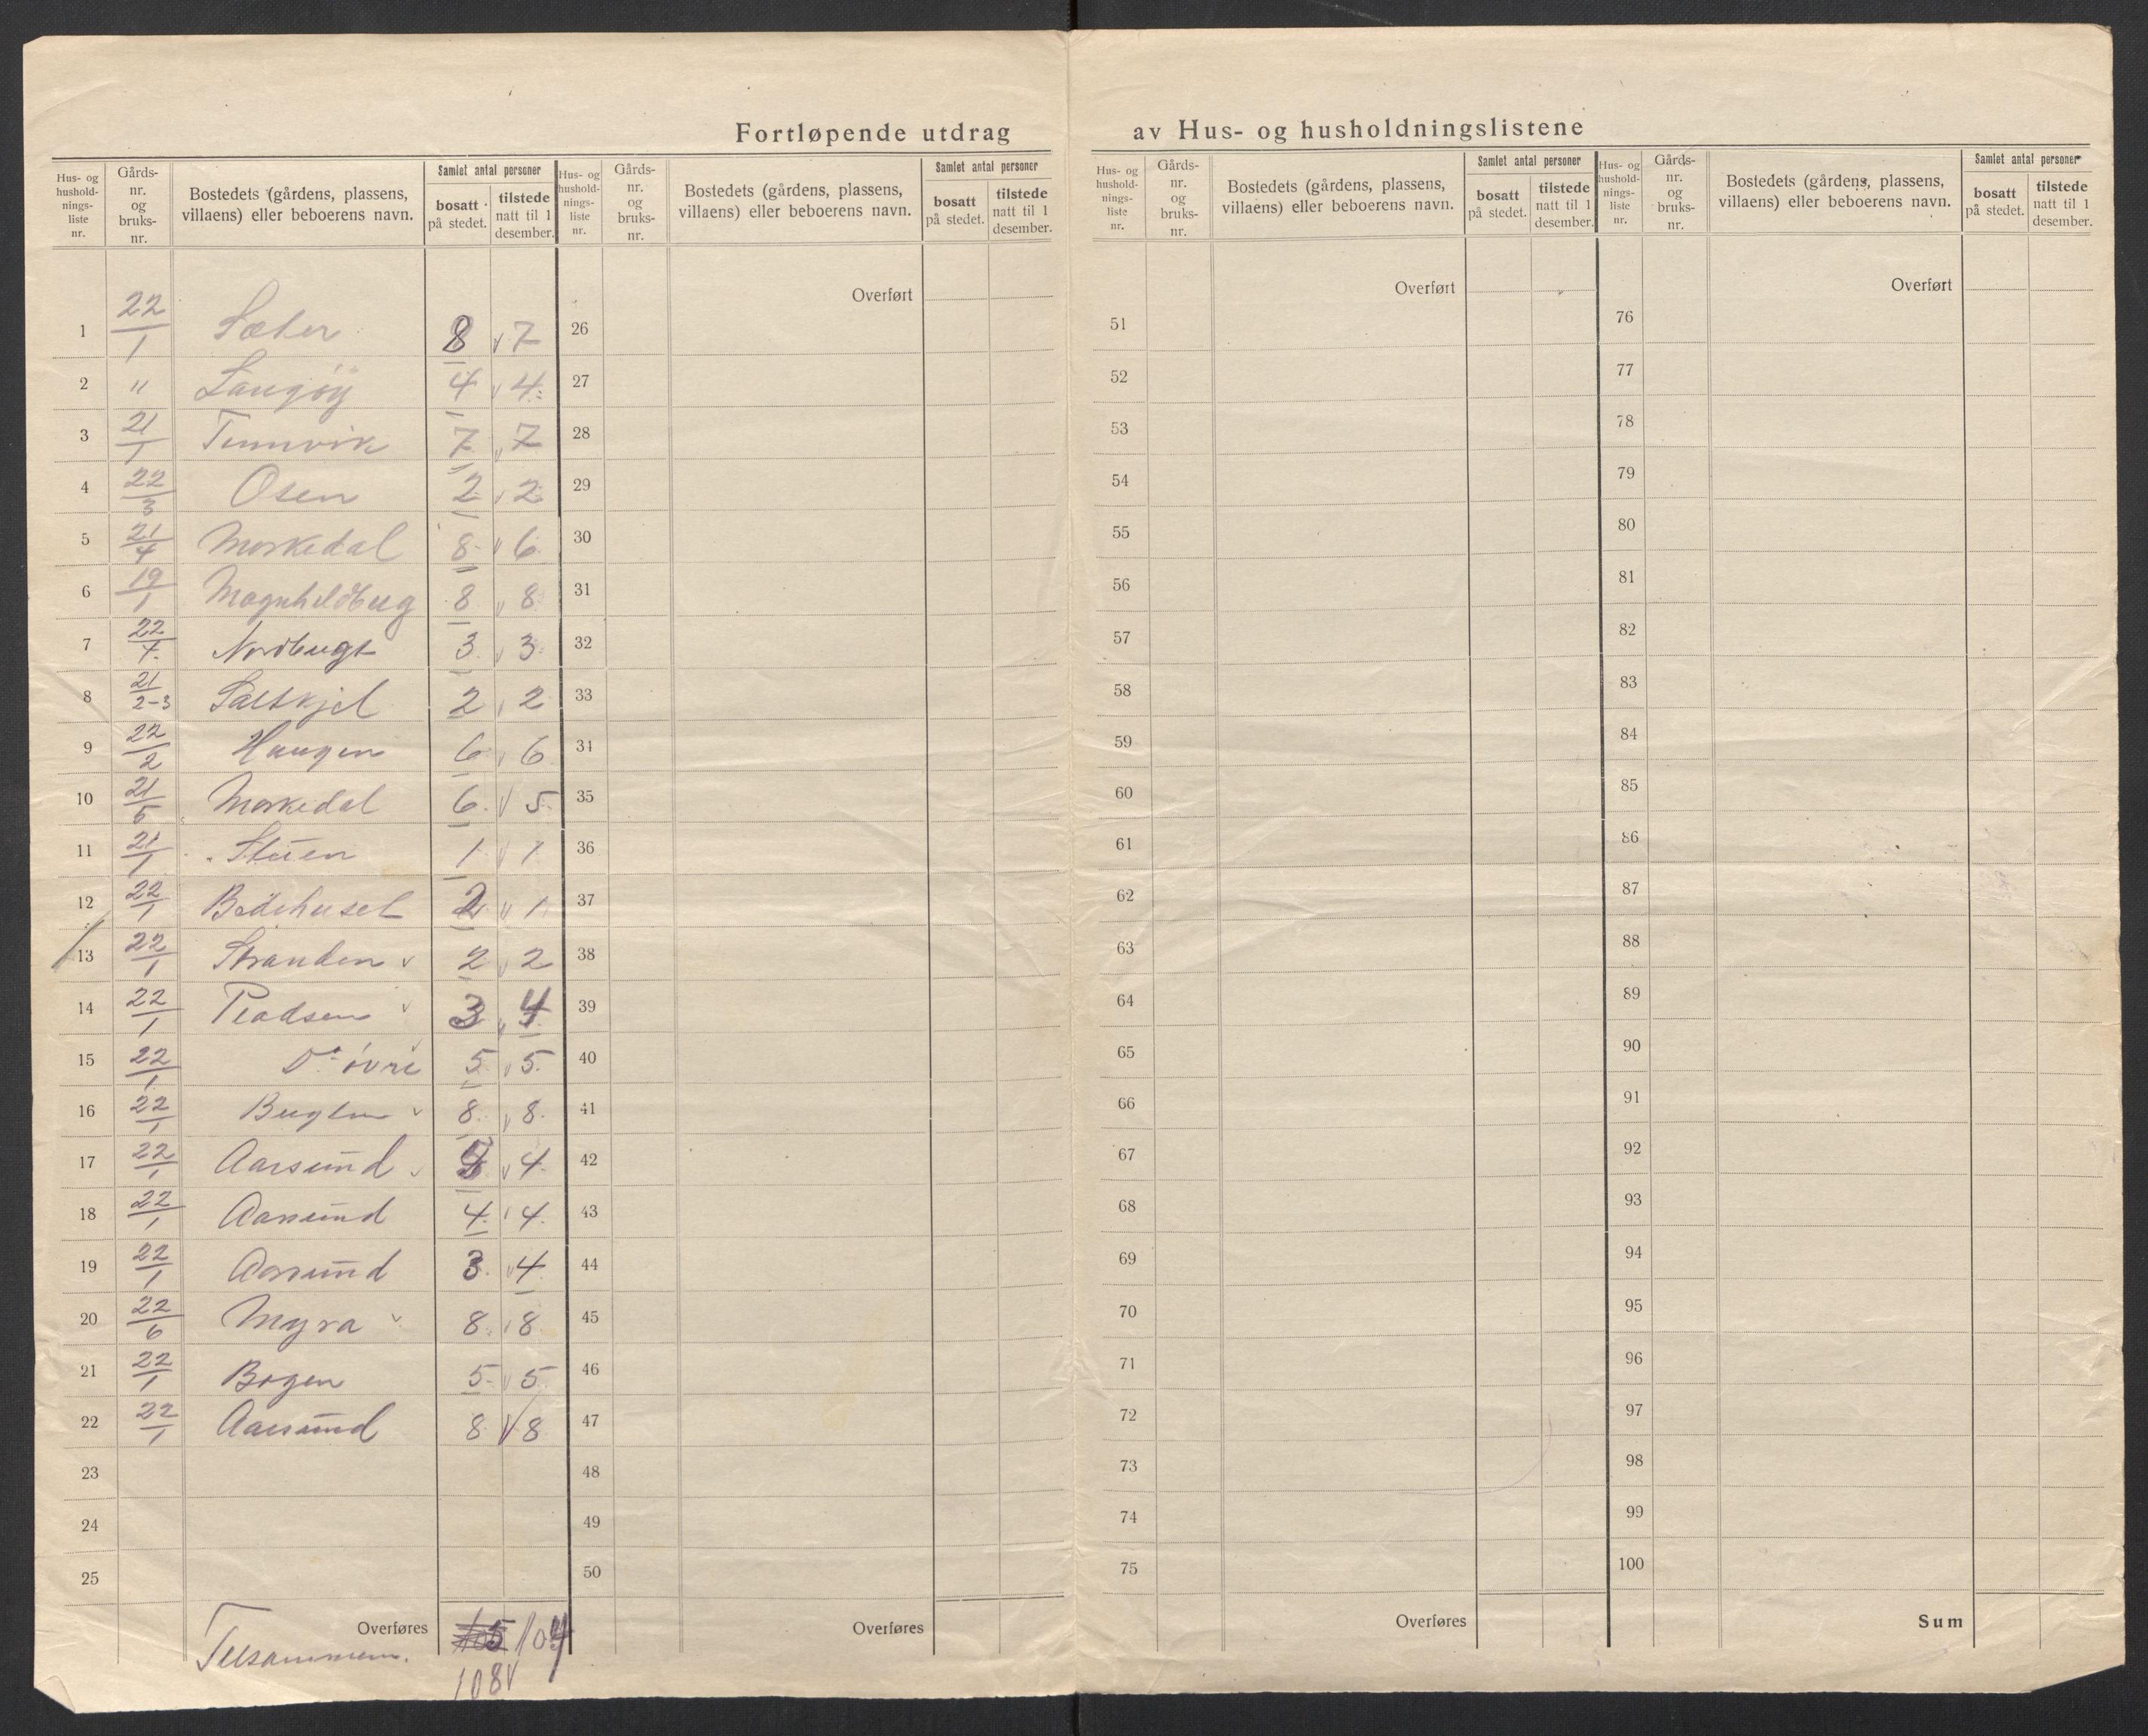 Fortløpende utdrag av Hus- og husholdningslistene
Hus- og hushold-nings-liste nr. | Gårds-nr. og bruks-nr. | Bostedets (gårdens, plassens, villaens) eller beboerens navn. | Samlet antal personer | bosatt på stedet. | tilstede natt til 1 desember.
Hus- og hushold-nings-liste nr. | Gårds-nr. og bruks-nr. | Bostedets (gårdens, plassens, villaens) eller beboerens navn. | Samlet antal personer | bosatt på stedet. | tilstede natt til 1 desember.
Hus- og hushold-nings-liste nr. | Gårds-nr. og bruks-nr. | Bostedets (gårdens, plassens, villaens) eller beboerens navn. | Samlet antal personer | bosatt på stedet. | tilstede natt til 1 desember.
Hus- og hushold-nings-liste nr. | Gårds-nr. og bruks-nr. | Bostedets (gårdens, plassens, villaens) eller beboerens navn. | Samlet antal personer | bosatt på stedet. | tilstede natt til 1 desember.
Overført Overført Overført
1 22/1 Sæter 8 7 26 51 76
2 " Langøy 4 4 27 52 77
3 21/1 Tennvik 7 7 28 53 78
4 22/3 Osen 2 2 29 54 79
5 21/4 Morkedal 8 6 30 55 80
6 19/1 8 8 31 56 81
7 22/7 Nordbugt 3 3 32 57 82
8 21/2-3 Saltskjel 2 2 33 58 83
9 22/2 Haugen 6 6 34 59 84
10 21/5 Morkedal 6 5 35 60 85
11 21/1 Stuen 1 1 36 61 86
12 22/1 Bedehuset 2 1 37 62 87
13 22/1 Stranden 2 2 38 63 88
14 22/1 3 4 39 64 89
15 22/1 Do øvre 5 5 40 65 90
16 22/1 8 8 41 66 91
17 22/1 Aarsund 4 42 67 92
18 22/1 Aarsund 4 4 43 68 93
19 22/1 Aarsund 3 4 44 69 94
20 22/6 Myra 8 8 45 70 95
21 22/1 Bogen 5 5 46 71 96
22 22/1 Aarsund 8 8 47 72 97
23 48 73 98
24 49 74 99
25 50 75 100
Overføres 104 Overføres Overføres Sum
Tilsammen. 108